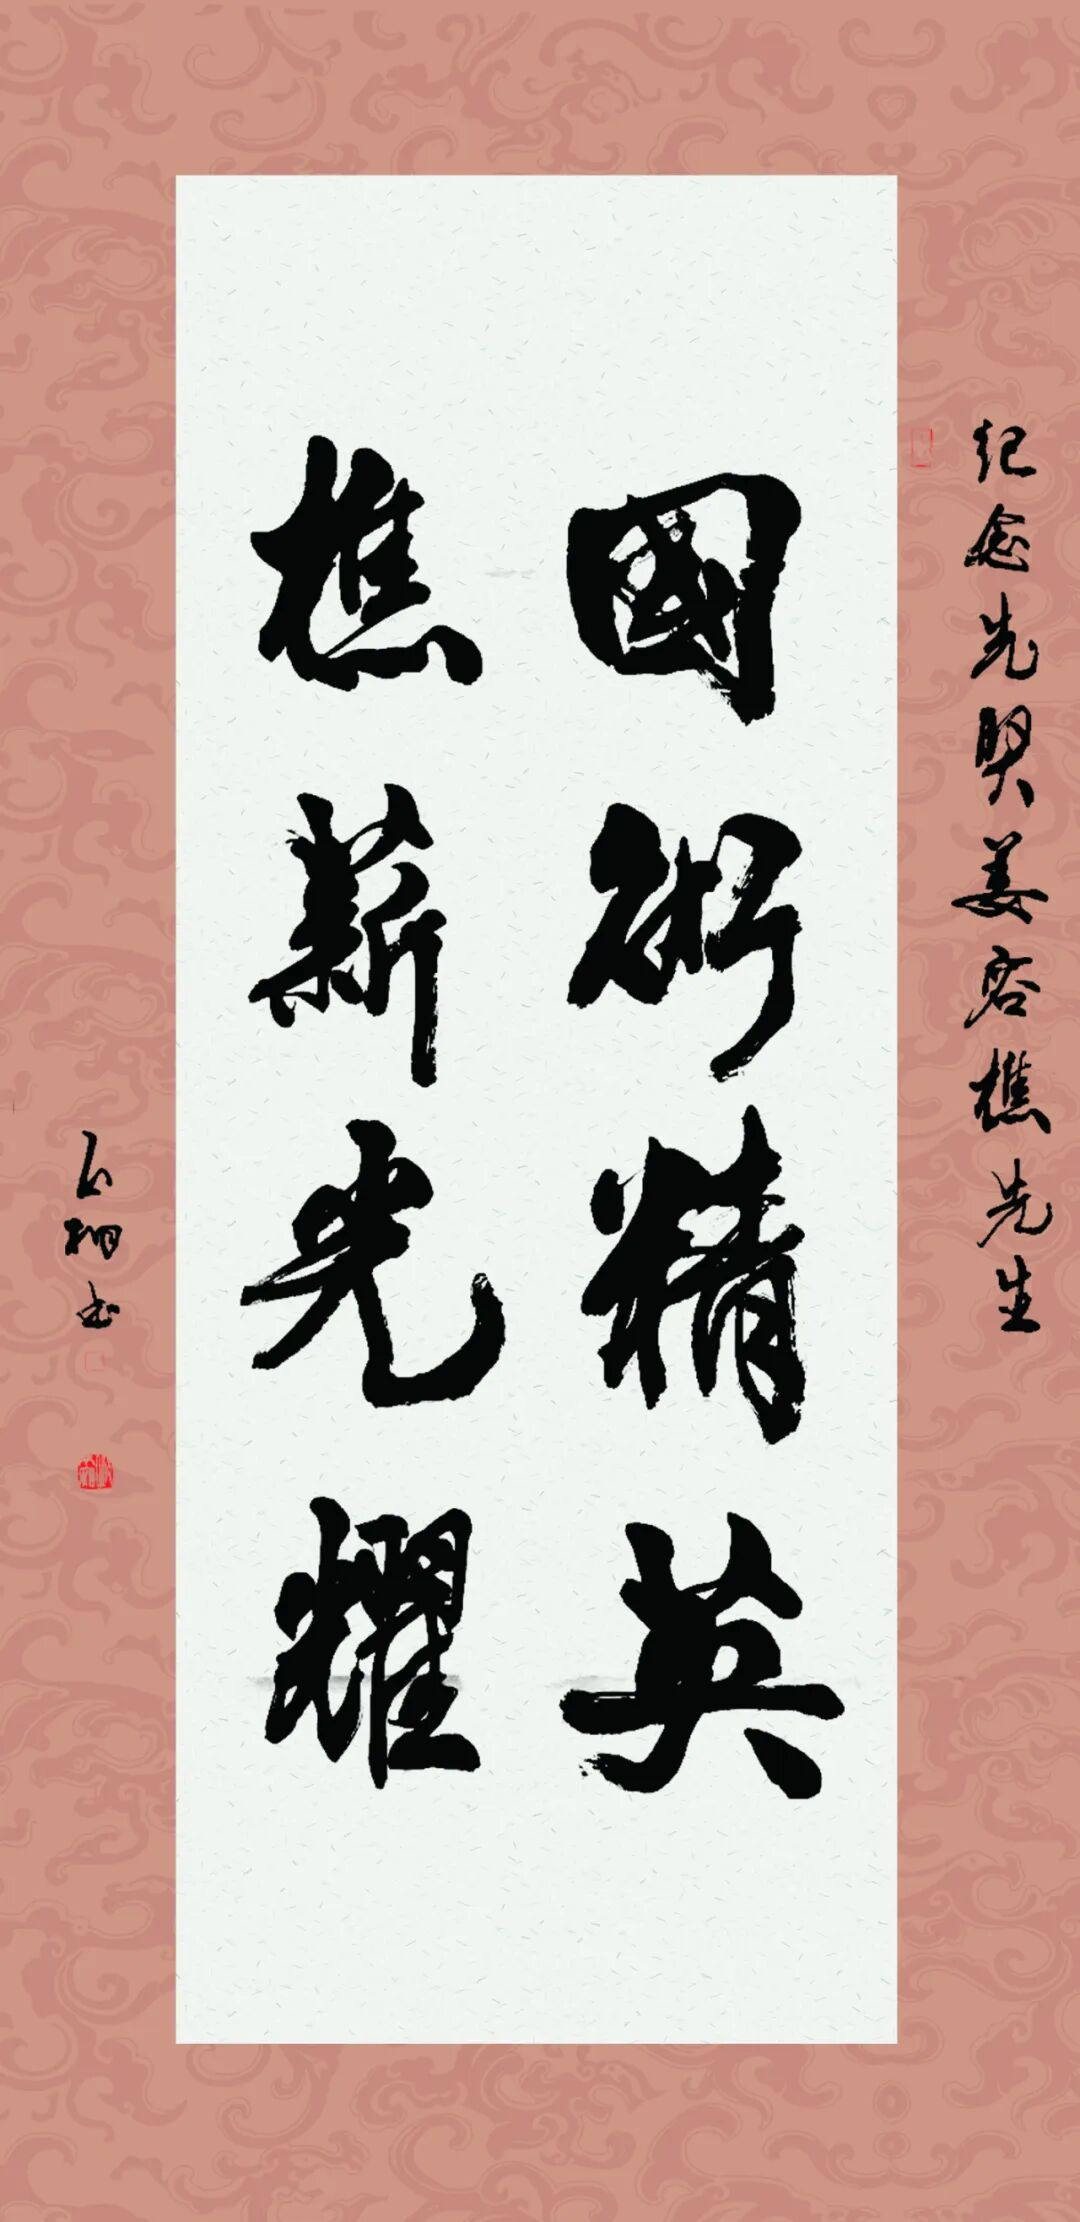 纪念先贤姜容樵先生
國術精英
樵薪光耀
书